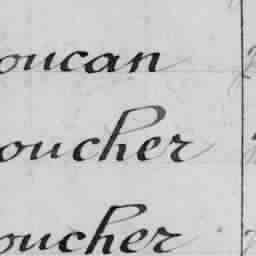 oucan
oucher
oucher